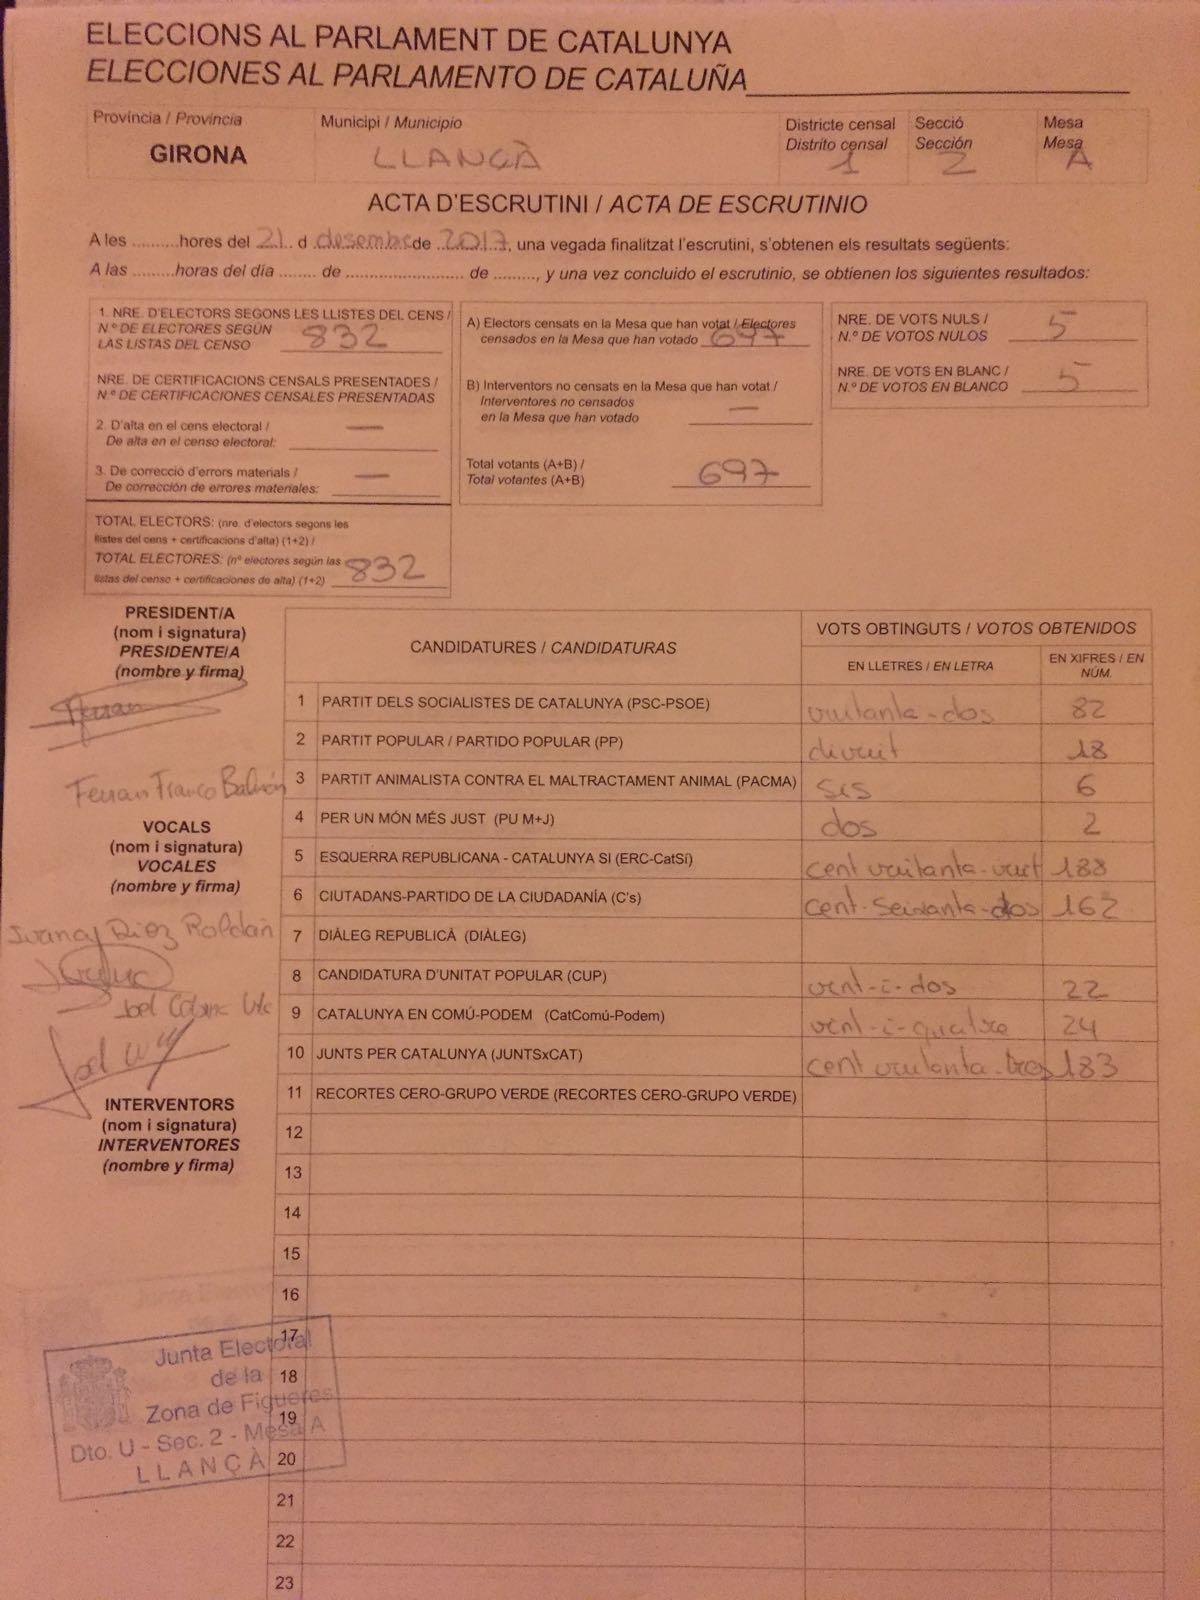 ELECCIONS AL PARLAMENT DE CATALUNYA
ELECCIONES AL PARLAMENTO DE CATALUÑA
Província / Provincia
GIRONA
Municipi / Municipio
LLANÇÀ
Districte censal
Distrito censal
1
Secció
Sección
2
Mesa
Mesa
A
ACTA D'ESCRUTINI / ACTA DE ESCRUTINIO
A les .........hores del 21 d desembre de 2017, una vegada finalitzat l'escrutini, s'obtenen els resultats següents:
A las .........horas del día ........ de ........................ de ........., y una vez concluido el escrutinio, se obtienen los siguientes resultados:
1. NRE. D'ELECTORS SEGONS LES LLISTES DEL CENS /
N.º DE ELECTORES SEGÚN
LAS LISTAS DEL CENSO 832
NRE. DE CERTIFICACIONS CENSALS PRESENTADES /
N.º DE CERTIFICACIONES CENSALES PRESENTADAS
2. D'alta en el cens electoral / —
De alta en el censo electoral:
3. De correcció d'errors materials / —
De corrección de errores materiales:
TOTAL ELECTORS: (nre. d'electors segons les
llistes del cens + certificacions d'alta) (1+2) /
TOTAL ELECTORES: (nº electores según las
listas del censo + certificaciones de alta) (1+2) 832
A) Electors censats en la Mesa que han votat / Electores
censados en la Mesa que han votado 697
B) Interventors no censats en la Mesa que han votat /
Interventores no censados
en la Mesa que han votado —
Total votants (A+B) /
Total votantes (A+B) 697
NRE. DE VOTS NULS /
N.º DE VOTOS NULOS 5
NRE. DE VOTS EN BLANC /
N.º DE VOTOS EN BLANCO 5
PRESIDENT/A
(nom i signatura)
PRESIDENTE/A
(nombre y firma)
Ferran
Ferran Franco
VOCALS
(nom i signatura)
VOCALES
(nombre y firma)
Diez Roldán
Joel
INTERVENTORS
(nom i signatura)
INTERVENTORES
(nombre y firma)
CANDIDATURES / CANDIDATURAS
VOTS OBTINGUTS / VOTOS OBTENIDOS
EN LLETRES / EN LETRA
EN XIFRES / EN NÚM.
1 PARTIT DELS SOCIALISTES DE CATALUNYA (PSC-PSOE) vuitanta-dos 82
2 PARTIT POPULAR / PARTIDO POPULAR (PP) divuit 18
3 PARTIT ANIMALISTA CONTRA EL MALTRACTAMENT ANIMAL (PACMA) sis 6
4 PER UN MÓN MÉS JUST (PU M+J) dos 2
5 ESQUERRA REPUBLICANA - CATALUNYA SI (ERC-CatSí) cent vuitanta-vuit 188
6 CIUTADANS-PARTIDO DE LA CIUDADANÍA (C's) cent-seixanta-dos 162
7 DIÀLEG REPUBLICÀ (DIÀLEG)
8 CANDIDATURA D'UNITAT POPULAR (CUP) vint-i-dos 22
9 CATALUNYA EN COMÚ-PODEM (CatComú-Podem) vint-i-quatre 24
10 JUNTS PER CATALUNYA (JUNTSxCAT) cent vuitanta-tres 183
11 RECORTES CERO-GRUPO VERDE (RECORTES CERO-GRUPO VERDE)
12
13
14
15
16
17
18
19
20
21
22
23
Junta Electoral
de la
Zona de Figueres
Dto. U - Sec. 2 - Mesa A
LLANÇÀ